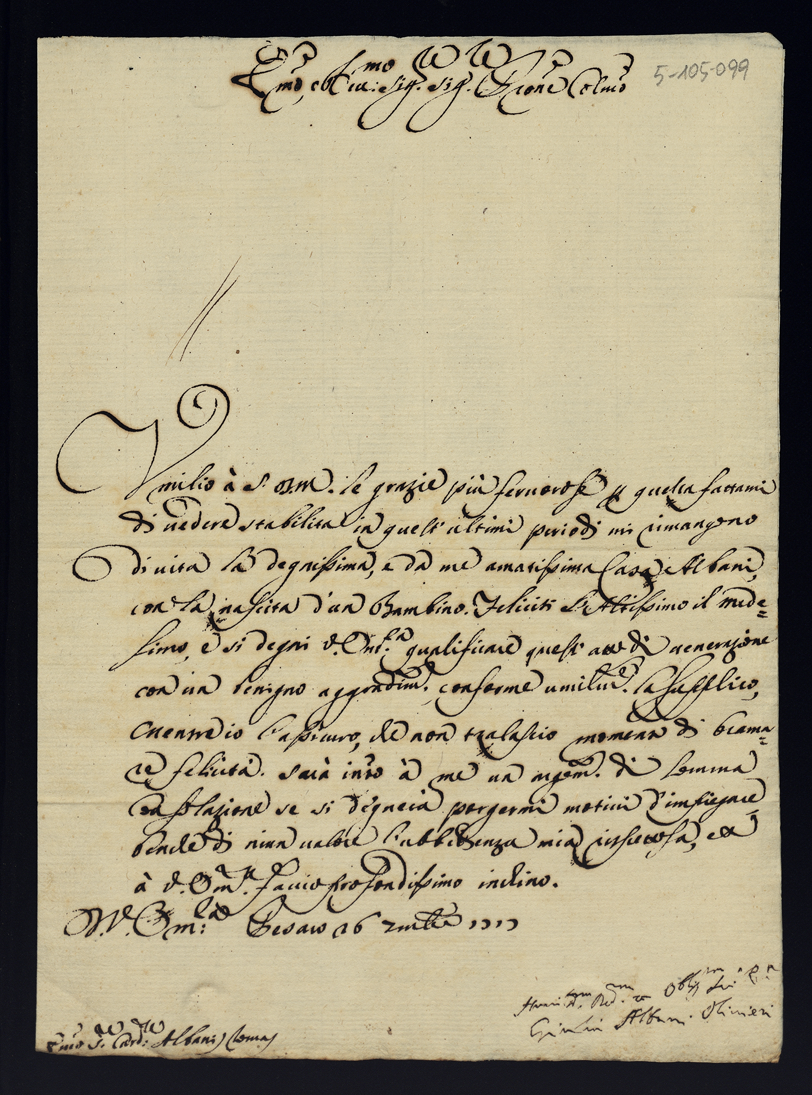 Emo, e Rmo Sig. Sig. Prone Colmo
5-105-099
Umilio à S. D. M. le grazie più fervorose p quella fattami
di vedere stabilita in questi ultimi periodi mi rimangono
di vita la degnissima, e da me amatissima Casa Albani,
con la nascita d'un Bambino. Feliciti l'Altissimo il mede=
simo, e si degni V. Em.a qualificare quest'atto di venerazione
con un benigno aggradim.o conforme umilm.e la supplico,
mentre io l'assicuro, che non tralascio momenti di brama=
re felicità. Sarà in à me un argom.o di somma
consolazione se si degnerà porgermi motivi d'impiegare
benche di niun valore l'ubbidienza mia rispettosa, et
à V. Em.a faccio profondissimo inchino.
D. V. Em.a Pesaro 26 9mbre 1717
Giulia Albani Olivieri
Emo S. Card. Albani Roma